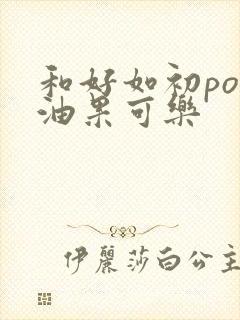 和好如初po
油果可樂
伊麗莎白公主